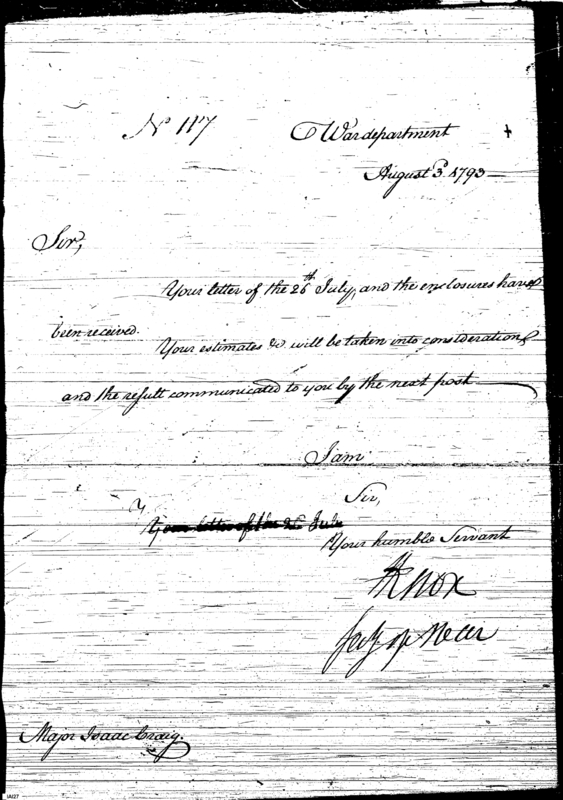 No 117
War department
August 3d. 1793
Sir,
Your letter of the 26th July, and the enclosures have
been received.
Your estimates &c will be taken into consideration,
and the result communicated to you by the next post
I am
Sir,
Your letter of the 26 July
Your humble Servant
HKnox
secy of war
Major Isaac Craig.